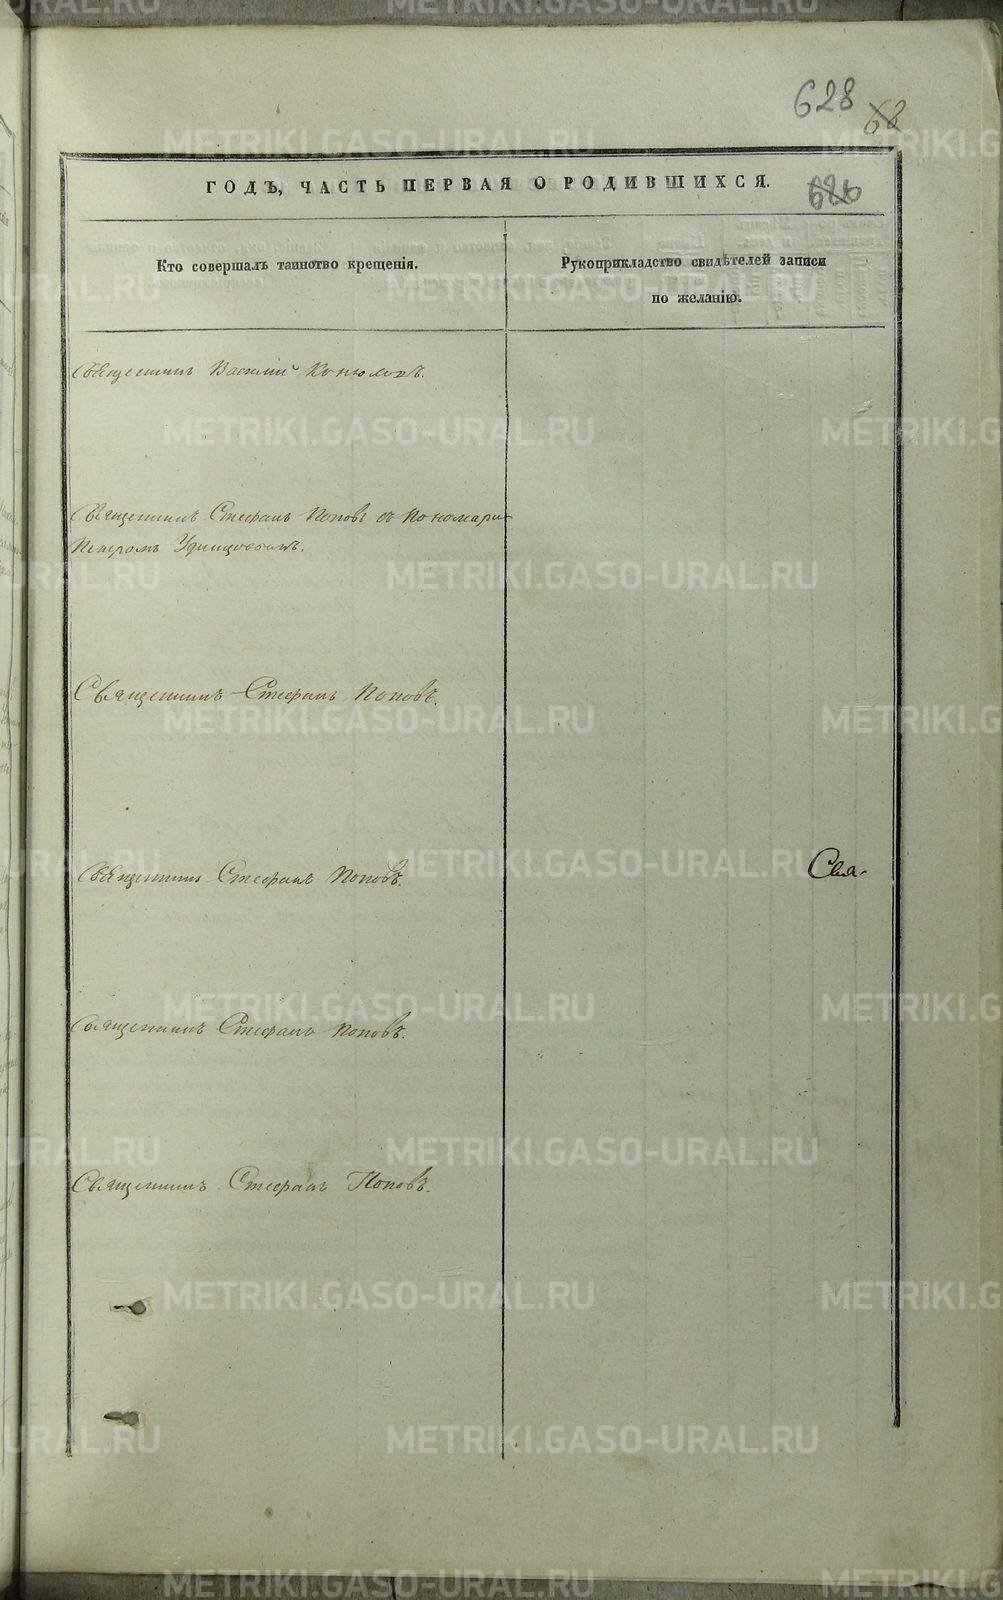 628
68
626
ГОДЪ, ЧАСТЬ ПЕРВАЯ О РОДИВШИХСЯ.
Кто совершалъ таинство крещенія.
Рукоприкладство свидѣтелей записи
по желанію.
Священникъ Василій
Священникъ Стефанъ Поповъ съ Пономаремъ
Петромъ Удинцовымъ.
Священникъ Стефанъ Поповъ.
Священникъ Стефанъ Поповъ.
Свя-
Священникъ Стефанъ Поповъ.
Священникъ Стефанъ Поповъ.
METRIKI.GASO-URAL.RU